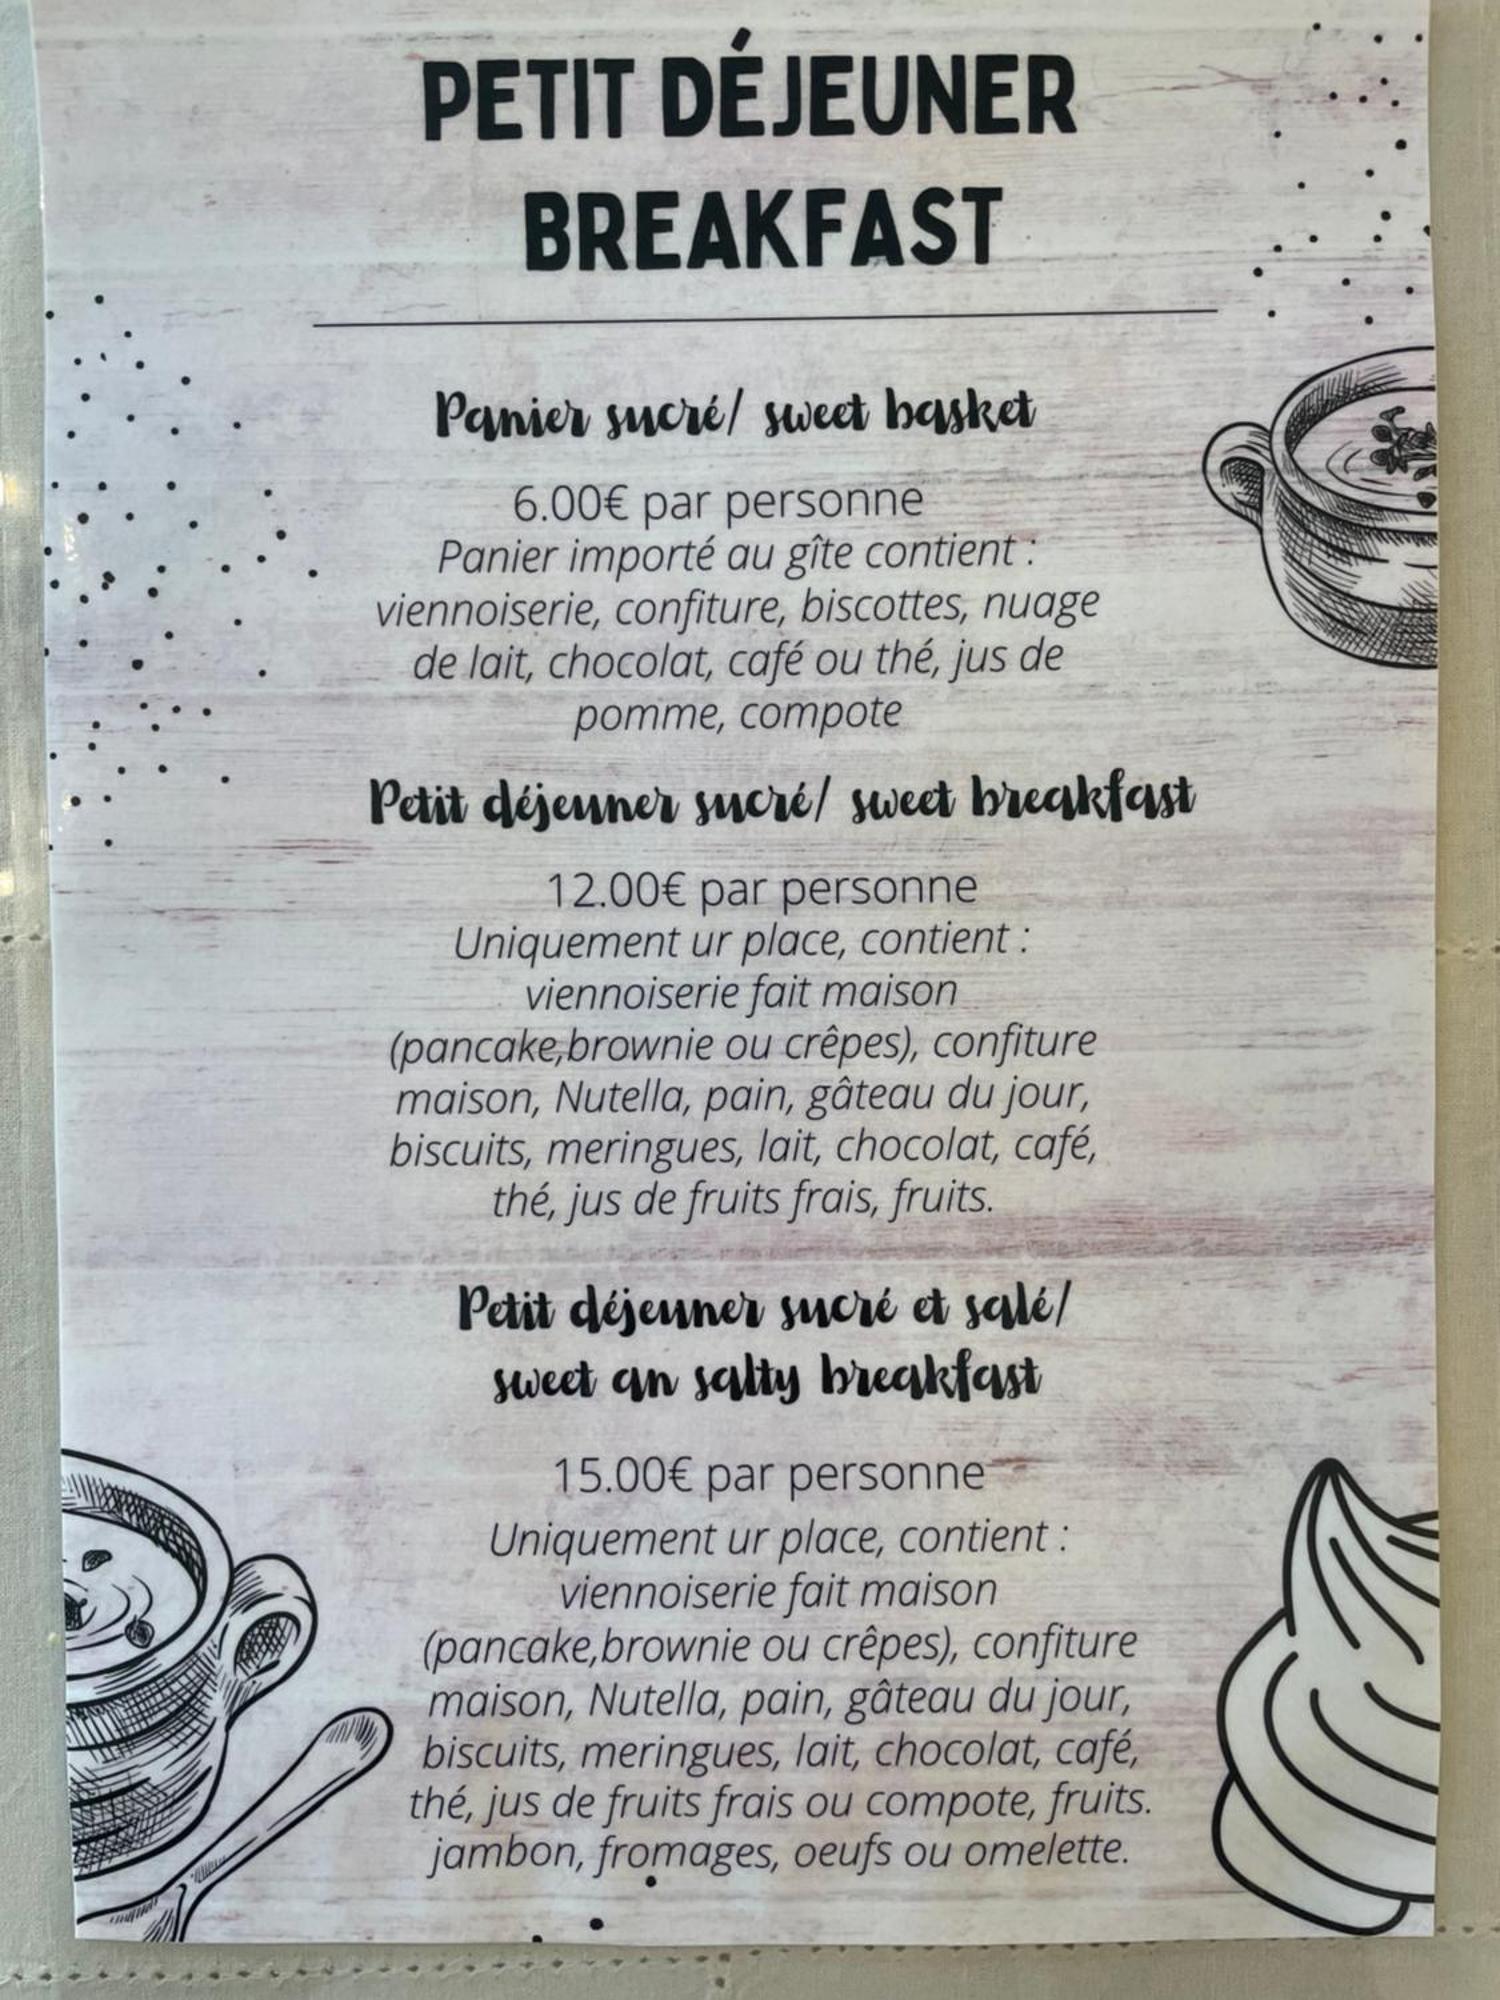 PETIT DÉJEUNER
BREAKFAST
Panier sucré/ sweet basket
6.00€ par personne
Panier importé au gîte contient :
viennoiserie, confiture, biscottes, nuage
de lait, chocolat, café ou thé, jus de
pomme, compote
Petit déjeuner sucré/ sweet breakfast
12.00€ par personne
Uniquement ur place, contient :
viennoiserie fait maison
(pancake,brownie ou crêpes), confiture
maison, Nutella, pain, gâteau du jour,
biscuits, meringues, lait, chocolat, café,
thé, jus de fruits frais, fruits.
Petit déjeuner sucré et salé/
sweet an salty breakfast
15.00€ par personne
Uniquement ur place, contient :
viennoiserie fait maison
(pancake,brownie ou crêpes), confiture
maison, Nutella, pain, gâteau du jour,
biscuits, meringues, lait, chocolat, café,
thé, jus de fruits frais ou compote, fruits.
jambon, fromages, oeufs ou omelette.